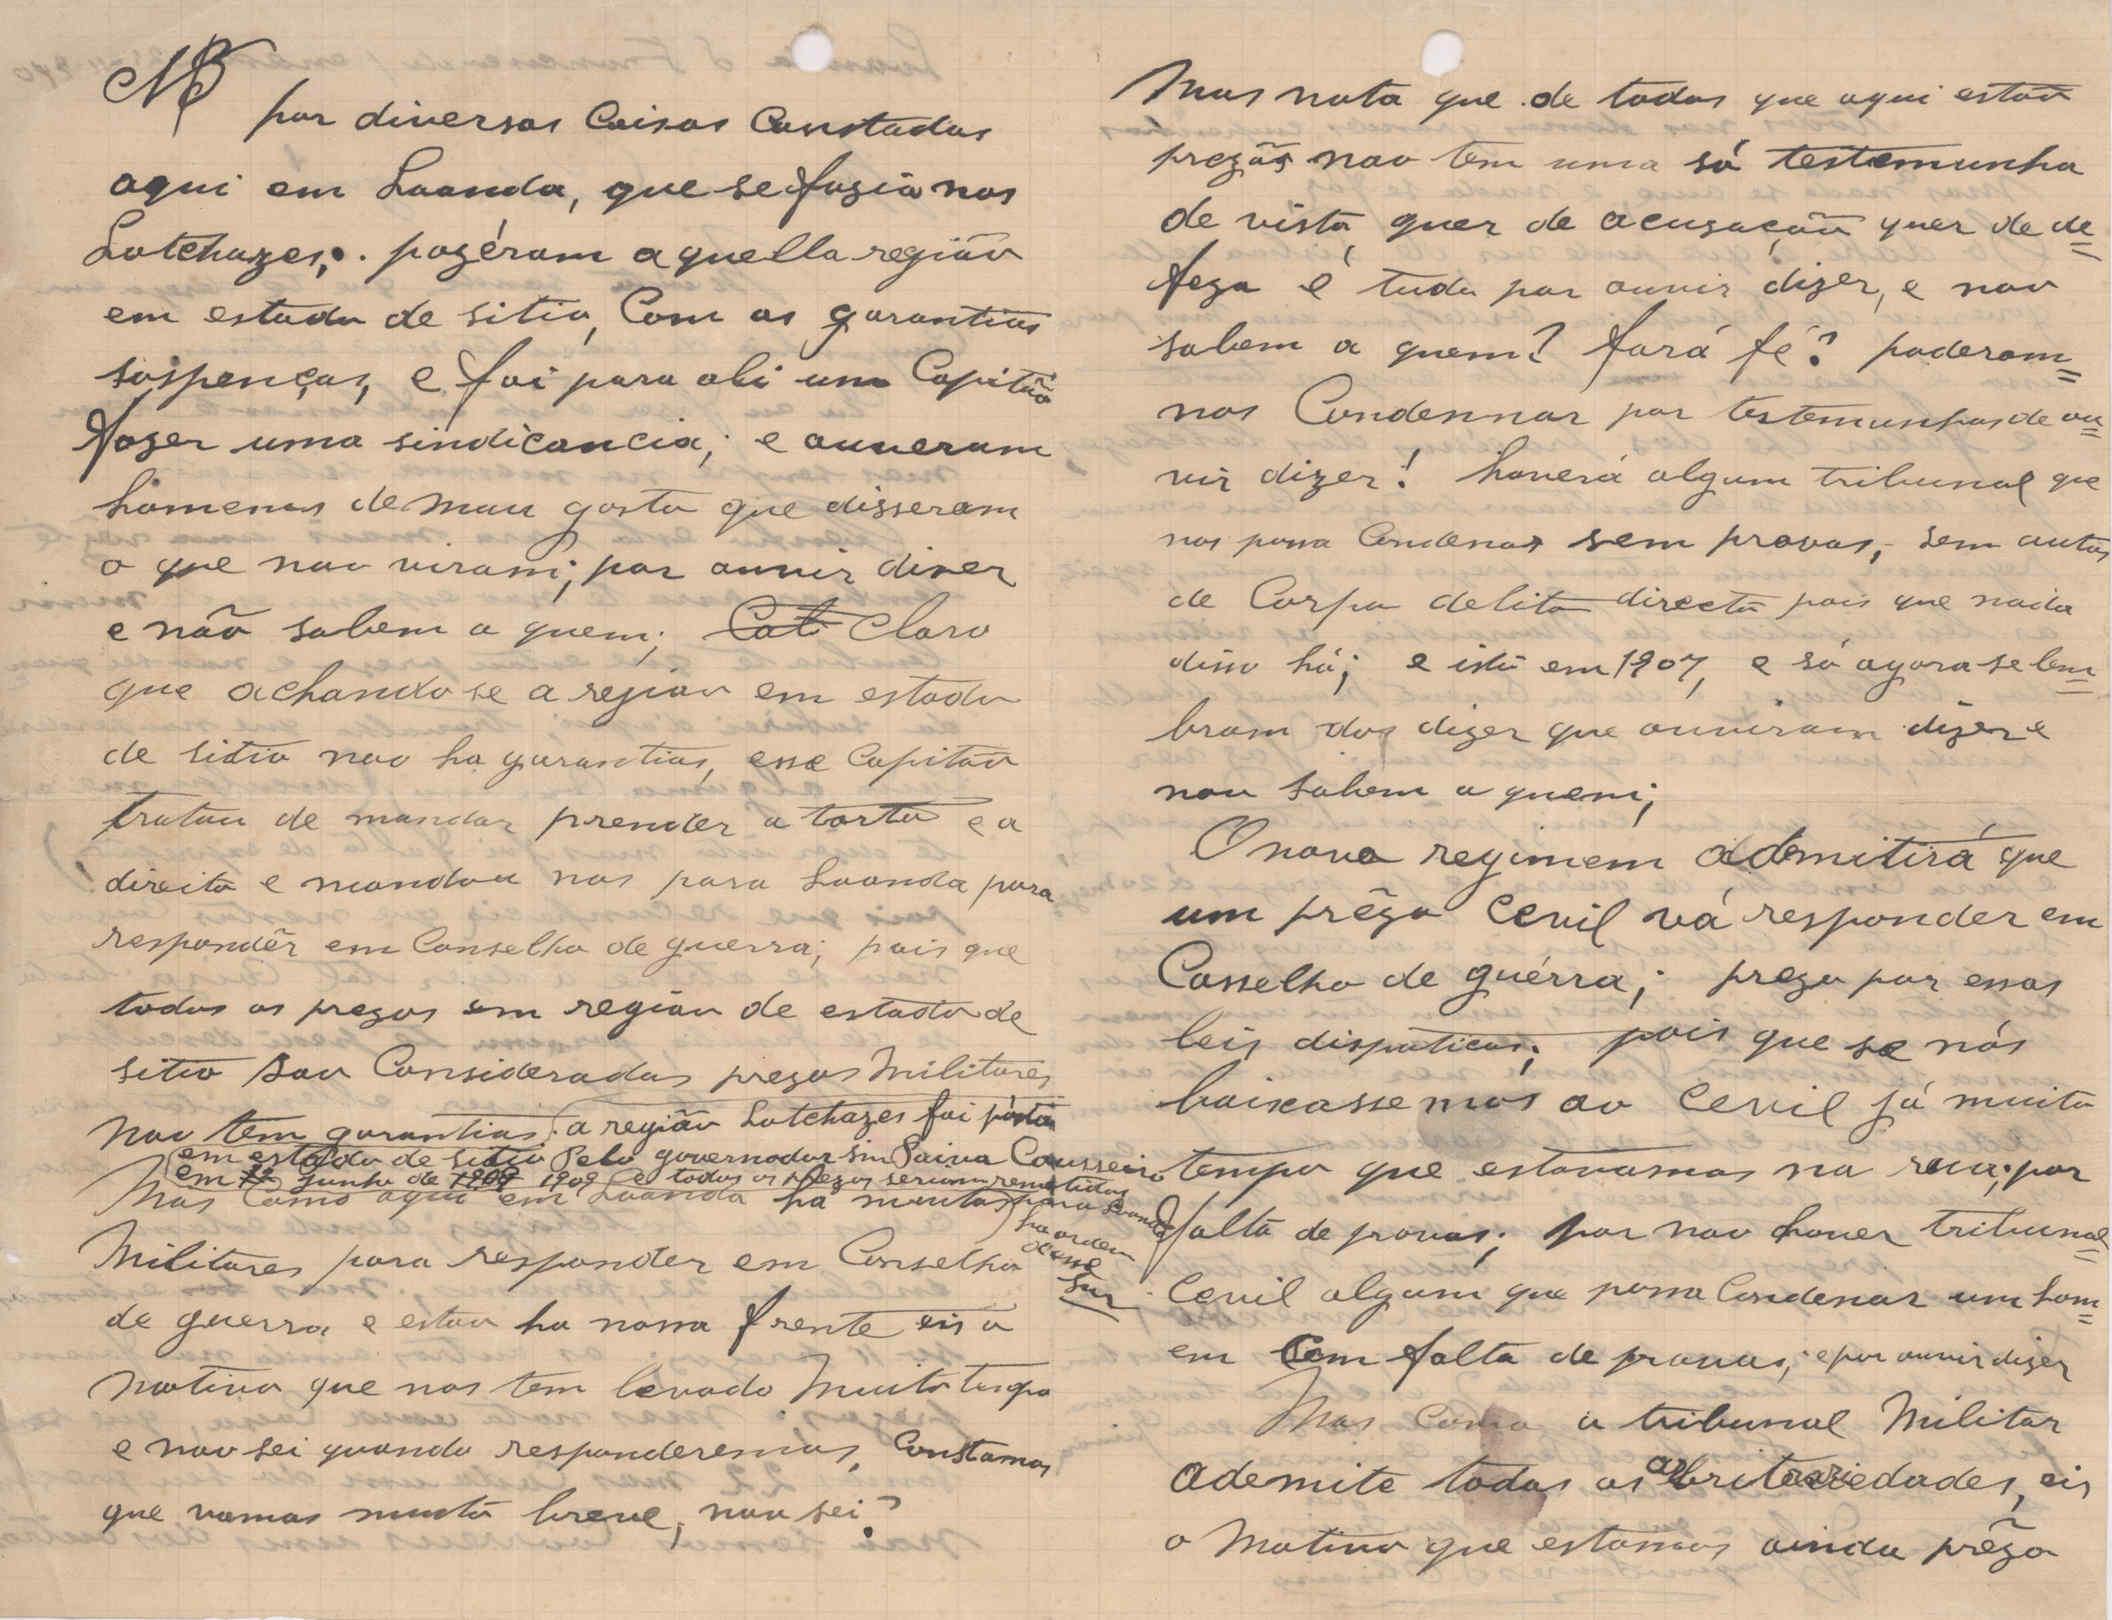 NB
por diversas Coisas Constadas
aqui em Loanda, que se fazia nos
Lutchazes, pozéram aquella região
em estado de sitio, Com as garantias
sospenças, e foi para ali um Capitão
fazer uma sindicancia; e ouveram
homenas de mau gosto que disseram
o que nao viram; por ouvir diser
e não sabem a quem; Claro
que achando se a região em estado
de sitio nao ha garantias, esse Capitão
tratou de mandar prender a torto e a
direito e mandou nos para Loanda para
respondêr em Conselho de guerra; pois que
todos os prezos em região de estado de
sitio são Consideradas prezos Militares
nao tem garantias. (a região Lutchazes foi pôsta
em estado de sitio Pelo governador Snr Paiva Cousseiro
em junho de 1909 e todos os prezos seriam remetidos
para Loanda)
Mas Como aqui em Loanda ha muitos
ha ordem
desse
Snr
Militares para responder em Conselho
de guerra e estão ha nossa frente eis o
motivo que nos tem levado Muito tempo
e nao sei quando responderemos, Constamos
que vamos muito breve, nao sei?
Mas nota que de todos que aqui estão
prezos nao tem uma só testemunha
de vista quer de acusação quer de de=
feza é tudo por ouvir dizer, e nao
sabem a quem? fará fé? poderam=
nos Condennar por testemunhas de ou=
vir dizer! haverá algum tribunal que
nos possa Condenar sem provas, sem autos
de Corpo delito directo pois que nada
disso há; e isto em 1907, e só agora se lem=
bram dos dizer que ouviram dizer e
nao sabem a quem;
O novo regimem ademitirá que
um prêzo Cevil vá responder em
Cosselho de guérra; prezo por essas
leis dispoticas; pois que se nós
baixassemos ao Cevil já muito
tempo que estavamos na rua; por
falta de provas; por nao haver tribunal=
Cevil algum que possa Condenar um hom=
em Com falta de provas; e por ouvir dizer
Mas Como o tribunal Militar
ademite todas as arbritariedades, eis
o Motivo que estamos ainda prêzo